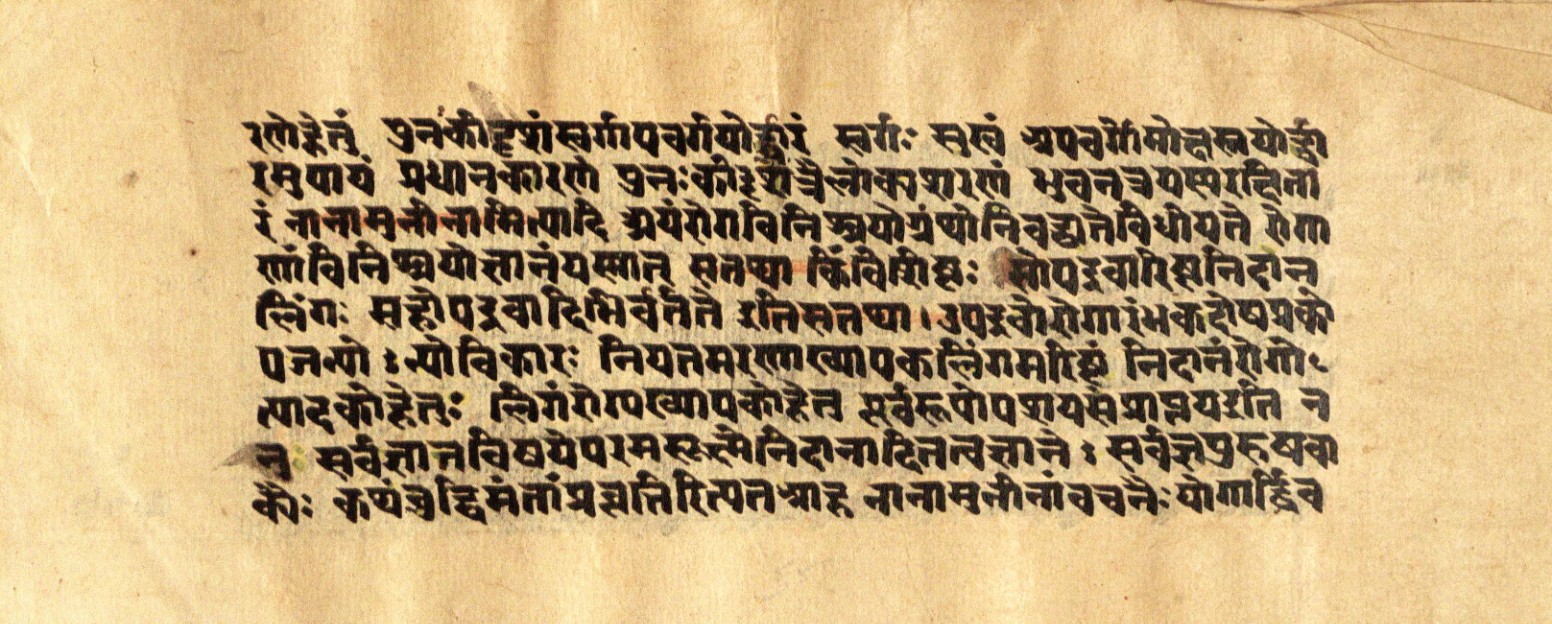 रणेहेतुं पुनः कीदृशं स्वर्गापवर्गयोर्द्वारं स्वर्गः सुखं अपवर्गोमोक्षस्तयोर्द्वा
रमुपायं प्रधानकारणं पुनःकीदृशंत्रैलोक्यशरणं भुवनत्रयस्परक्षिता
रं नानामुनीनामित्यादि अयंरोगविनिश्चयोग्रंथोनिवद्ध्यतेविधीयते रोगा
णांविनिश्चयोज्ञानंयस्मात् सतथा किंविशिष्टः सोपद्रवारिष्टनिदान
लिंगः सहोपद्रवादिभिर्वर्तते इतिसतथा। उपद्रवोरोगारंभकदोषप्रको
पजन्यो ः न्योविकारः नियतमरणाख्यापकलिंगमरिष्टं निदानंरोगो
त्पादकोहेतुः लिंगंरोगख्यापकोहेतु पूर्वरूपोपशयसंप्राप्तयइति न
नु सर्वज्ञानविषयेपरमसूक्ष्मेनिदानादितत्वज्ञाने ः सर्वज्ञपुरुषवा
क्यैः कथंबुद्धिमंतांप्रवृत्तिरित्यतआह नानामुनीनांवचनैः योगार्द्धिव